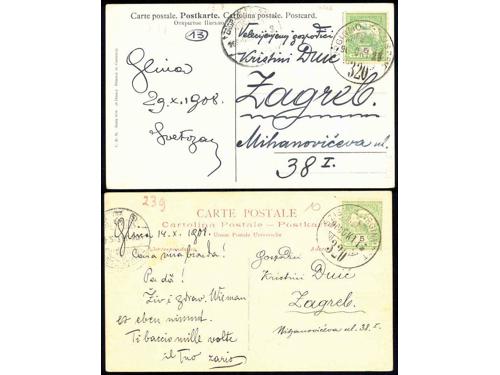 Carte postale. Postkarte. Cartolina postale. Postcard.
13
Velecijenjenoj gospodjici
Kristini Duić
Zagreb.
Mihanovićeva ul.
38 I.
Glina
29.X.1908.
Svetozar
320
239
10
CARTE POSTALE
Cartolina Postale - Postkarte
Union Postale Universelle
Glina 14.X.1908.
Cara mia bionda!
Pa dà!
Živ i zdrav.
est eben nimmt.
Ti baccio mille volte
il tuo zario
Gospdjici
Kristini Duić
Zagreb.
Mihanovićeva ul. 38. I.
320